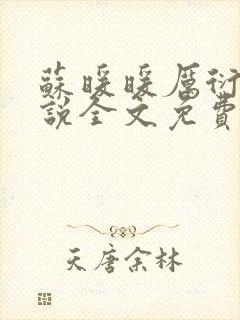 蘇暖暖厲衍
說全文免費
天唐余林